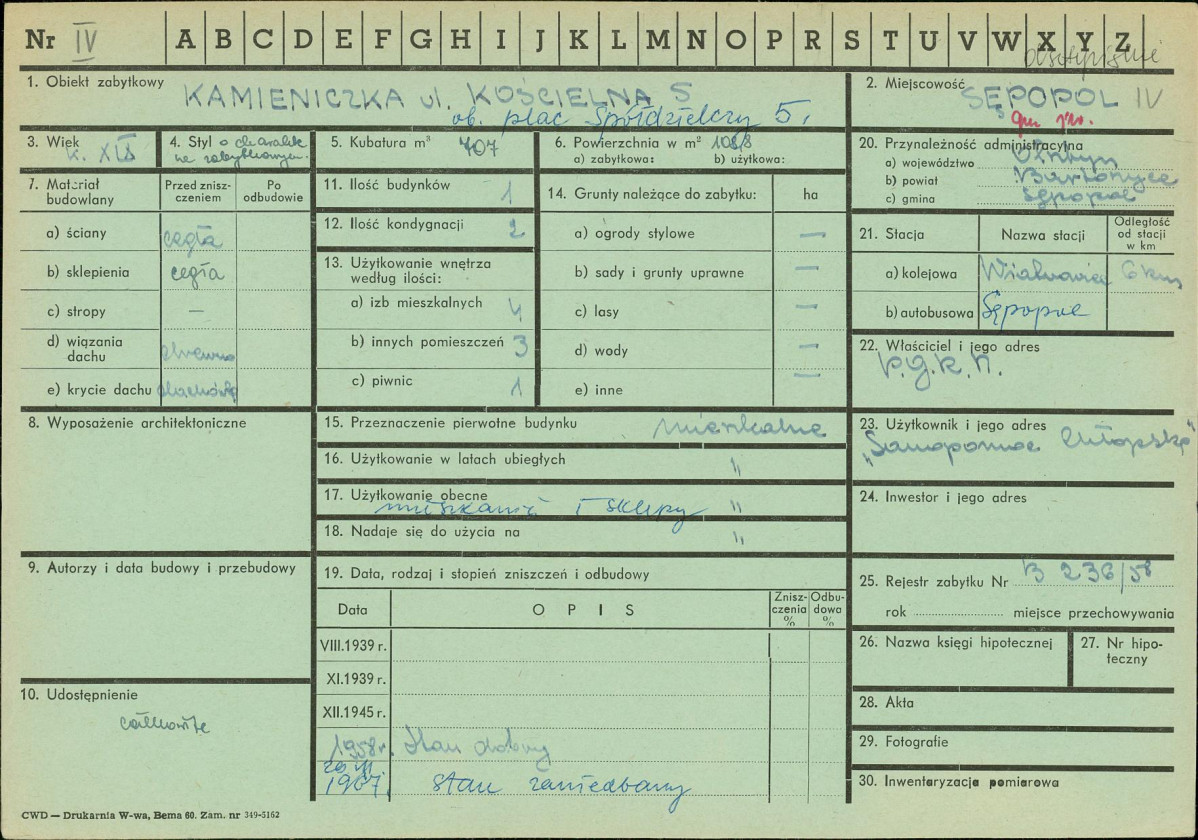 Nr IV A B C D E F G H I J K L M N O P R S T U V W X Y Z
1. Obiekt zabytkowy
KAMIENICZKA ul. KOŚCIELNA 5
ob. plac Spółdzielczy 5.
2. Miejscowość
SĘPOPOL IV
3. Wiek
k. XIX
4. Styl o charakte
rze zabytkowym.
5. Kubatura m³ 707
6. Powierzchnia w m² 108/8
a) zabytkowa: b) użytkowa:
20. Przynależność administracyjna
a) województwo Olsztyn
b) powiat Bartoszyce
c) gmina Sępopol
7. Materiał budowlany
Przed znisz-
czeniem
Po
odbudowie
a) ściany cegła
b) sklepienia cegła
c) stropy —
d) wiązania
dachu drewno
e) krycie dachu dachówka
11. Ilość budynków 1
12. Ilość kondygnacji 2
13. Użytkowanie wnętrza
według ilości:
a) izb mieszkalnych 4
b) innych pomieszczeń 3
c) piwnic 1
14. Grunty należące do zabytku: ha
a) ogrody stylowe —
b) sady i grunty uprawne —
c) lasy —
d) wody —
e) inne —
21. Stacja Nazwa stacji
Odległość
od stacji
w km
a) kolejowa 6 km
b) autobusowa Sępopol
22. Właściciel i jego adres
P.G.K.M.
8. Wyposażenie architektoniczne
15. Przeznaczenie pierwotne budynku mieszkalne
16. Użytkowanie w latach ubiegłych "
17. Użytkowanie obecne "
mieszkania i sklepy
18. Nadaje się do użycia na "
23. Użytkownik i jego adres
„Samopomoc Chłopska"
24. Inwestor i jego adres
9. Autorzy i data budowy i przebudowy
19. Data, rodzaj i stopień zniszczeń i odbudowy
Data OPIS
Znisz-
czenia
%
Odbu-
dowa
%
VIII.1939 r.
XI.1939 r.
XII.1945 r.
1958 r. Stan dobry
1967. stan zaniedbany
25. Rejestr zabytku Nr B 236/58
rok miejsce przechowywania
26. Nazwa księgi hipotecznej
27. Nr hipo-
teczny
10. Udostępnienie
całkowite
28. Akta
29. Fotografie
30. Inwentaryzacja pomiarowa
CWD — Drukarnia W-wa, Bema 60. Zam. nr 349-5162